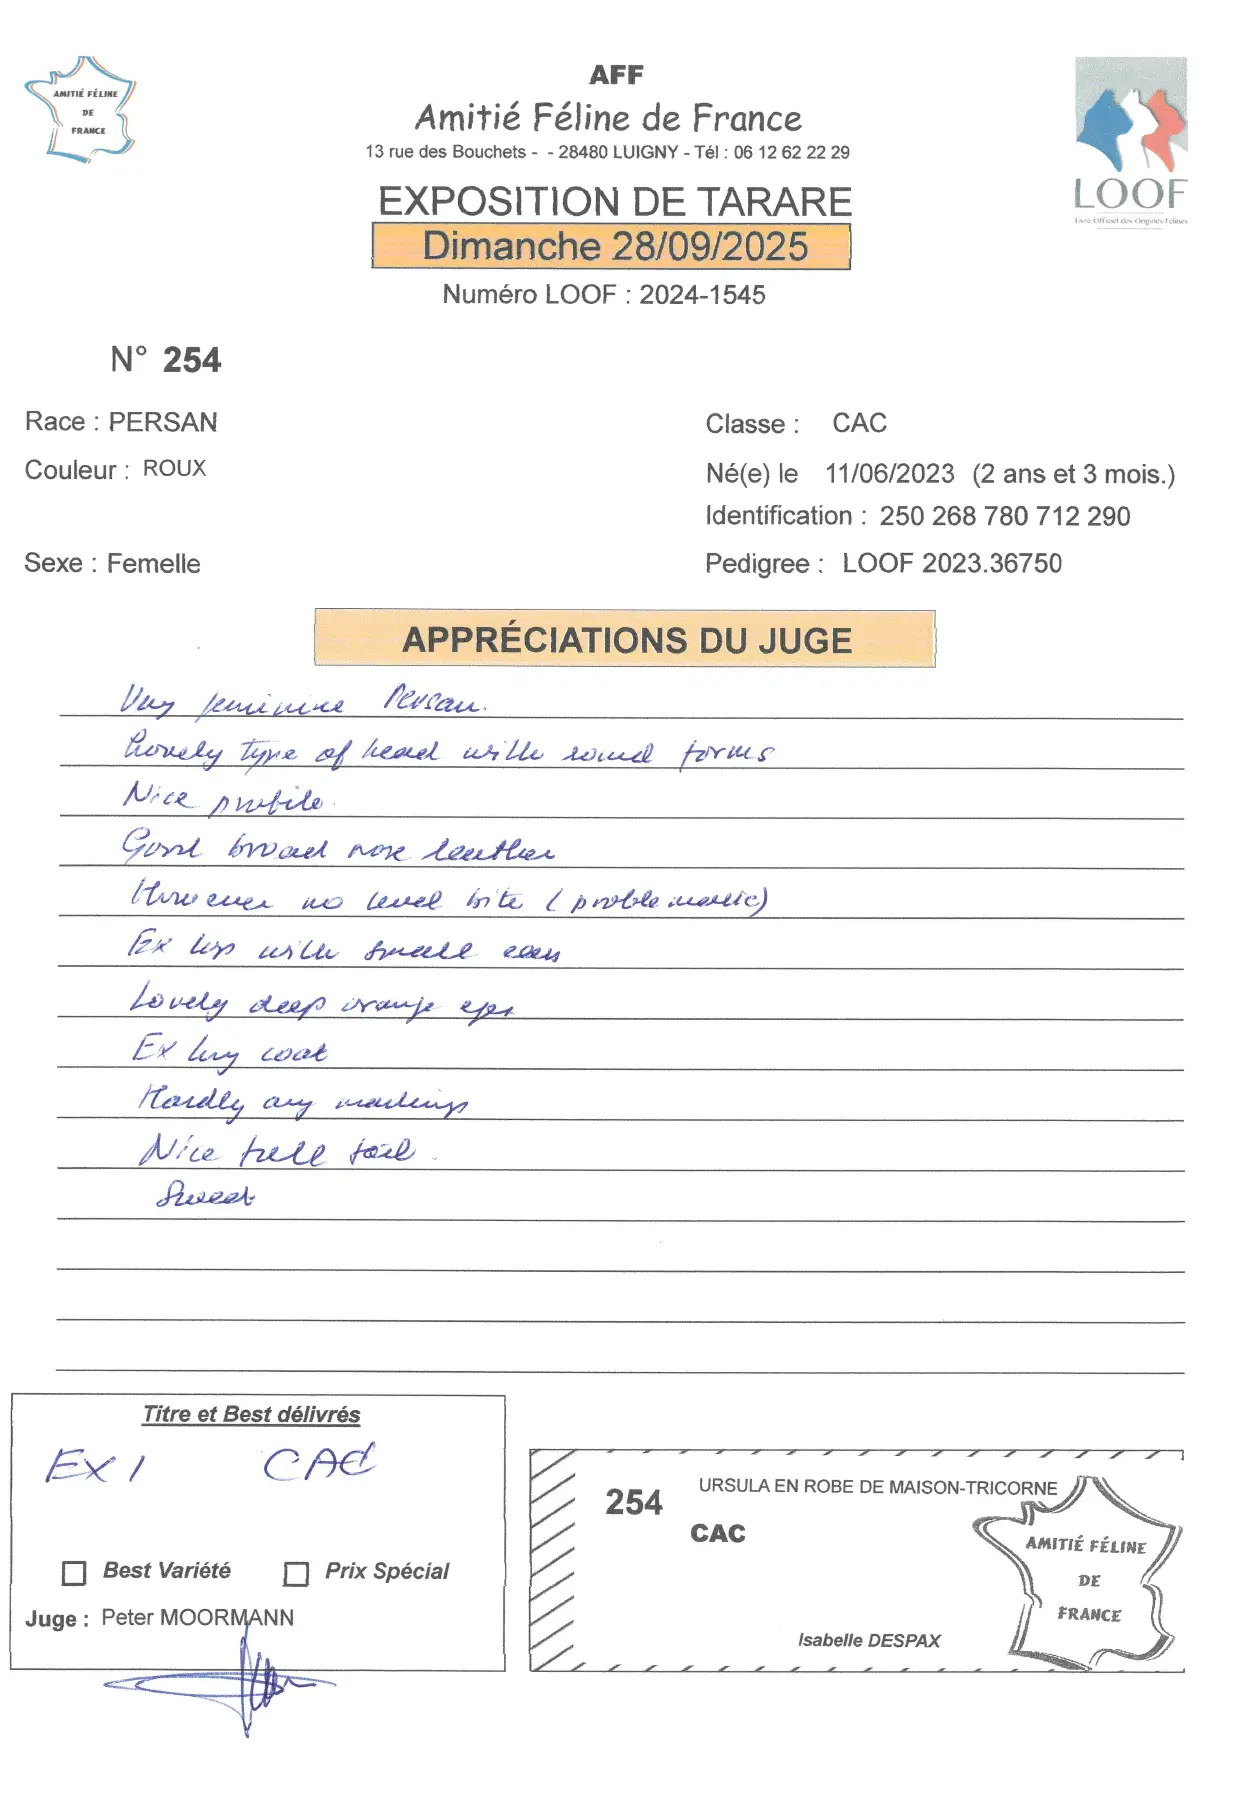 AMITIÉ FÉLINE
DE
FRANCE
AFF
Amitié Féline de France
13 rue des Bouchets - - 28480 LUIGNY - Tél : 06 12 62 22 29
EXPOSITION DE TARARE
Dimanche 28/09/2025
Numéro LOOF : 2024-1545
LOOF
Livre Officiel des Origines Félines
N° 254
Race : PERSAN
Classe : CAC
Couleur : ROUX
Né(e) le 11/06/2023 (2 ans et 3 mois.)
Identification : 250 268 780 712 290
Sexe : Femelle
Pedigree : LOOF 2023.36750
APPRÉCIATIONS DU JUGE
Very feminine Persan.
Lovely type of head with round forms
Nice profile.
Good broad nose leather
However no level bite (problematic)
Ex top with small ears
Lovely deep orange eyes
Ex long coat
Hardly any markings
Nice full tail.
Sweet
Titre et Best délivrés
EX 1 CAC
Best Variété Prix Spécial
Juge : Peter MOORMANN
254
URSULA EN ROBE DE MAISON-TRICORNE
CAC
Isabelle DESPAX
AMITIÉ FÉLINE
DE
FRANCE